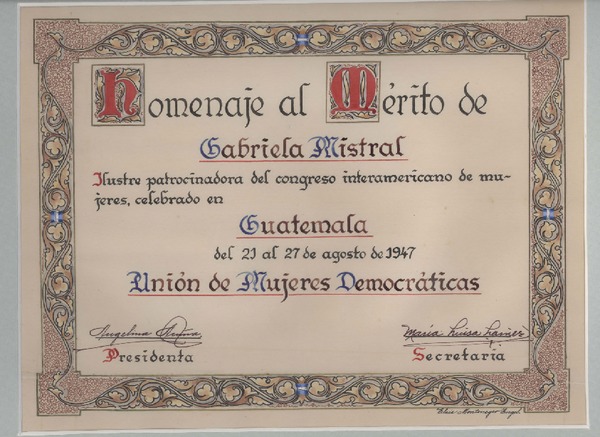 Homenaje al Mérito de
Gabriela Mistral
Ilustre patrocinadora del congreso interamericano de mu-
jeres, celebrado en
Guatemala
del 21 al 27 de agosto de 1947
Unión de Mujeres Democráticas
Angelina Acuña María Luisa Laínez
Presidenta Secretaria
Montenegro